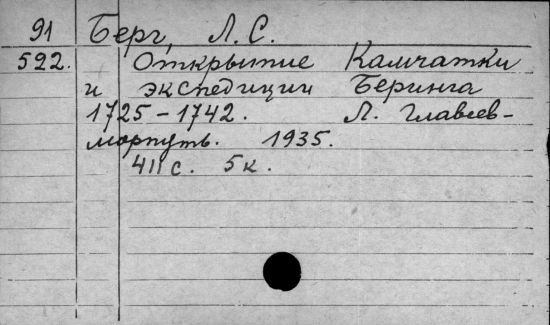 91 Берг, Л. С.
522. Открытие Камчатки
и экспедиции Беринга
1725 – 1742. Л. Главсев-
морпуть. 1935.
411 с. 5 к.